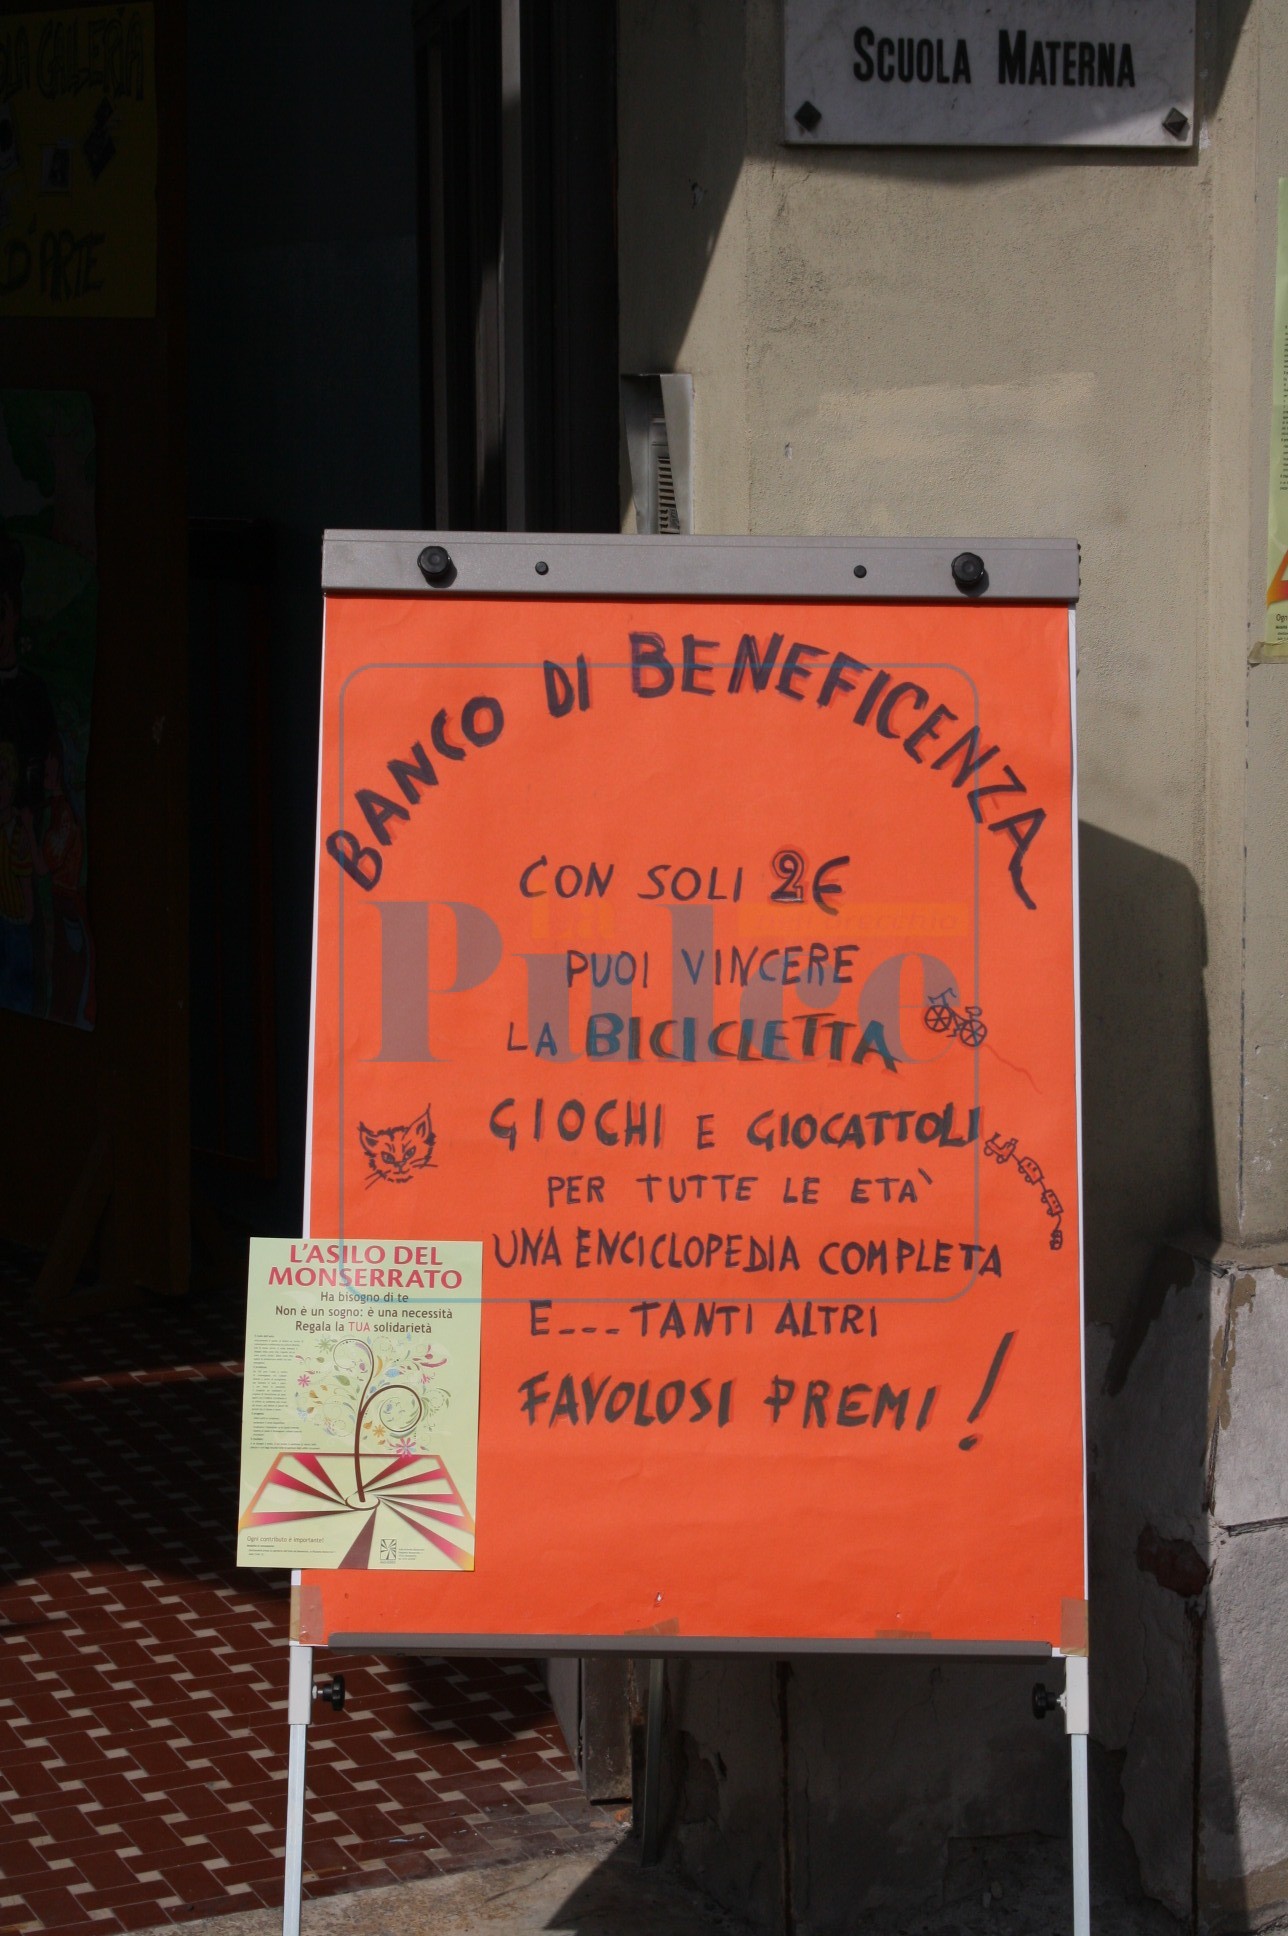 SCUOLA MATERNA
GALLERIA
D'ARTE
BANCO DI BENEFICENZA
CON SOLI 2€
PUOI VINCERE
LA BICICLETTA
GIOCHI E GIOCATTOLI
PER TUTTE LE ETA'
UNA ENCICLOPEDIA COMPLETA
E___TANTI ALTRI
FAVOLOSI PREMI!
LA
Pulce
L'ASILO DEL
MONSERRATO
Ha bisogno di te
Non è un sogno: è una necessità
Regala la TUA solidarietà
Ogni contributo è importante!